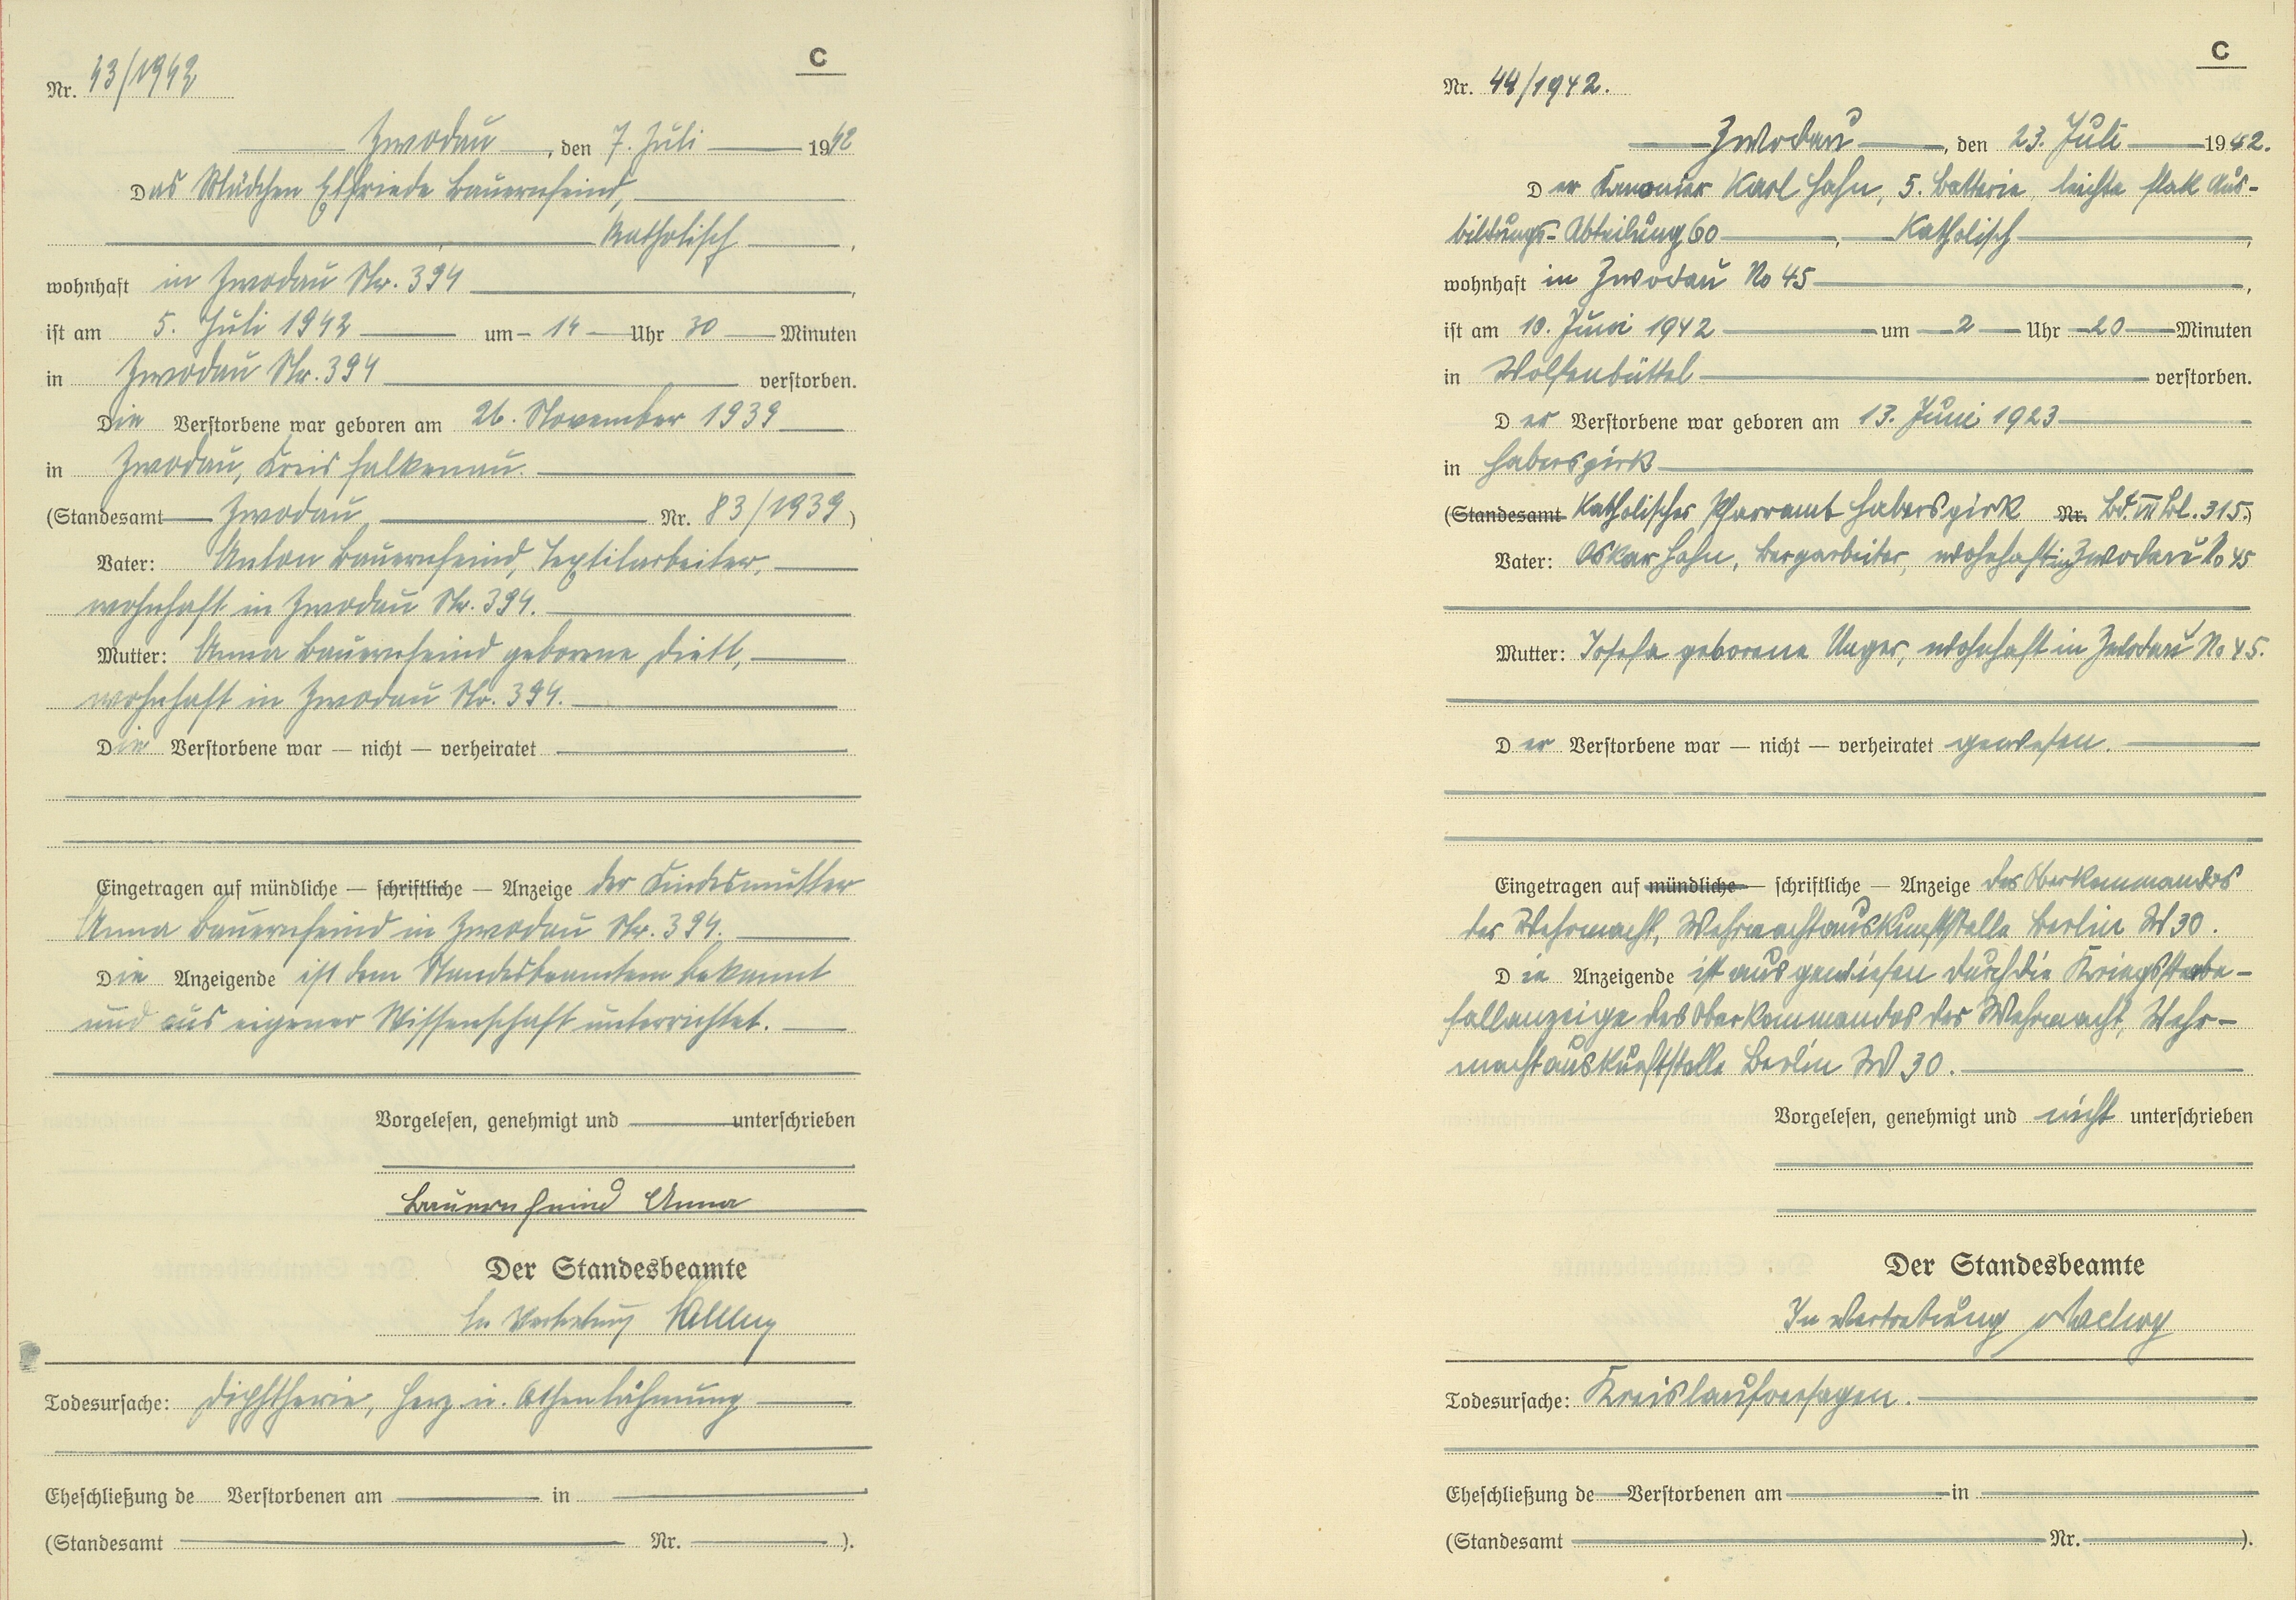 C
Nr. 43/1942
Zwodau, den 7. Juli 1942
Das Mädchen Elfriede Bauernfeind,
katholisch,
wohnhaft in Zwodau Nr. 394,
ist am 5. Juli 1942 um 14 Uhr 30 Minuten
in Zwodau Nr. 394 verstorben.
Die Verstorbene war geboren am 26. November 1939
in Zwodau, Kreis Falkenau.
(Standesamt Zwodau Nr. 83/1939)
Vater: Anton Bauernfeind, Textilarbeiter,
wohnhaft in Zwodau Nr. 394.
Mutter: Anna Bauernfeind geborene Dietl,
wohnhaft in Zwodau Nr. 394.
Die Verstorbene war — nicht — verheiratet
Eingetragen auf mündliche — schriftliche — Anzeige der Kindesmutter
Anna Bauernfeind in Zwodau Nr. 394.
Die Anzeigende ist dem Standesbeamten bekannt
und aus eigener Wissenschaft unterrichtet.
Vorgelesen, genehmigt und unterschrieben
Bauernfeind Anna
Der Standesbeamte
In Vertretung
Todesursache: Diphtherie, Herz u. Athenlähmung
Eheschließung de Verstorbenen am in
(Standesamt Nr. ).
C
Nr. 44/1942.
Zwodau, den 23. Juli 1942.
Der Kanonier Karl Hahn, 5. Batterie, leichte Flak Aus-
bildungs-Abteilung 60, Katholisch,
wohnhaft in Zwodau No 45,
ist am 10. Juni 1942 um 2 Uhr 20 Minuten
in Wolfenbüttel verstorben.
Der Verstorbene war geboren am 13. Juni 1923
in Haberspirk
(Standesamt Katholisches Pfarramt Haberspirk Nr. Bd. VII Bl. 315.)
Vater: Oskar Hahn, Bergarbeiter, wohnhaft in Zwodau No 45
Mutter: Josefa geborene Unger, wohnhaft in Zwodau No 45.
Der Verstorbene war — nicht — verheiratet gewesen.
Eingetragen auf mündliche — schriftliche — Anzeige des Oberkommandos
der Wehrmacht, Wehrmachtauskunftstelle Berlin W 30.
Die Anzeigende ist ausgewiesen durch die Kriegssterbe-
fallanzeige des Oberkommandos der Wehrmacht, Wehr-
machtauskunftstelle Berlin W 30.
Vorgelesen, genehmigt und nicht unterschrieben
Der Standesbeamte
In Vertretung
Todesursache: Kreislaufversagen.
Eheschließung de Verstorbenen am in
(Standesamt Nr. ).